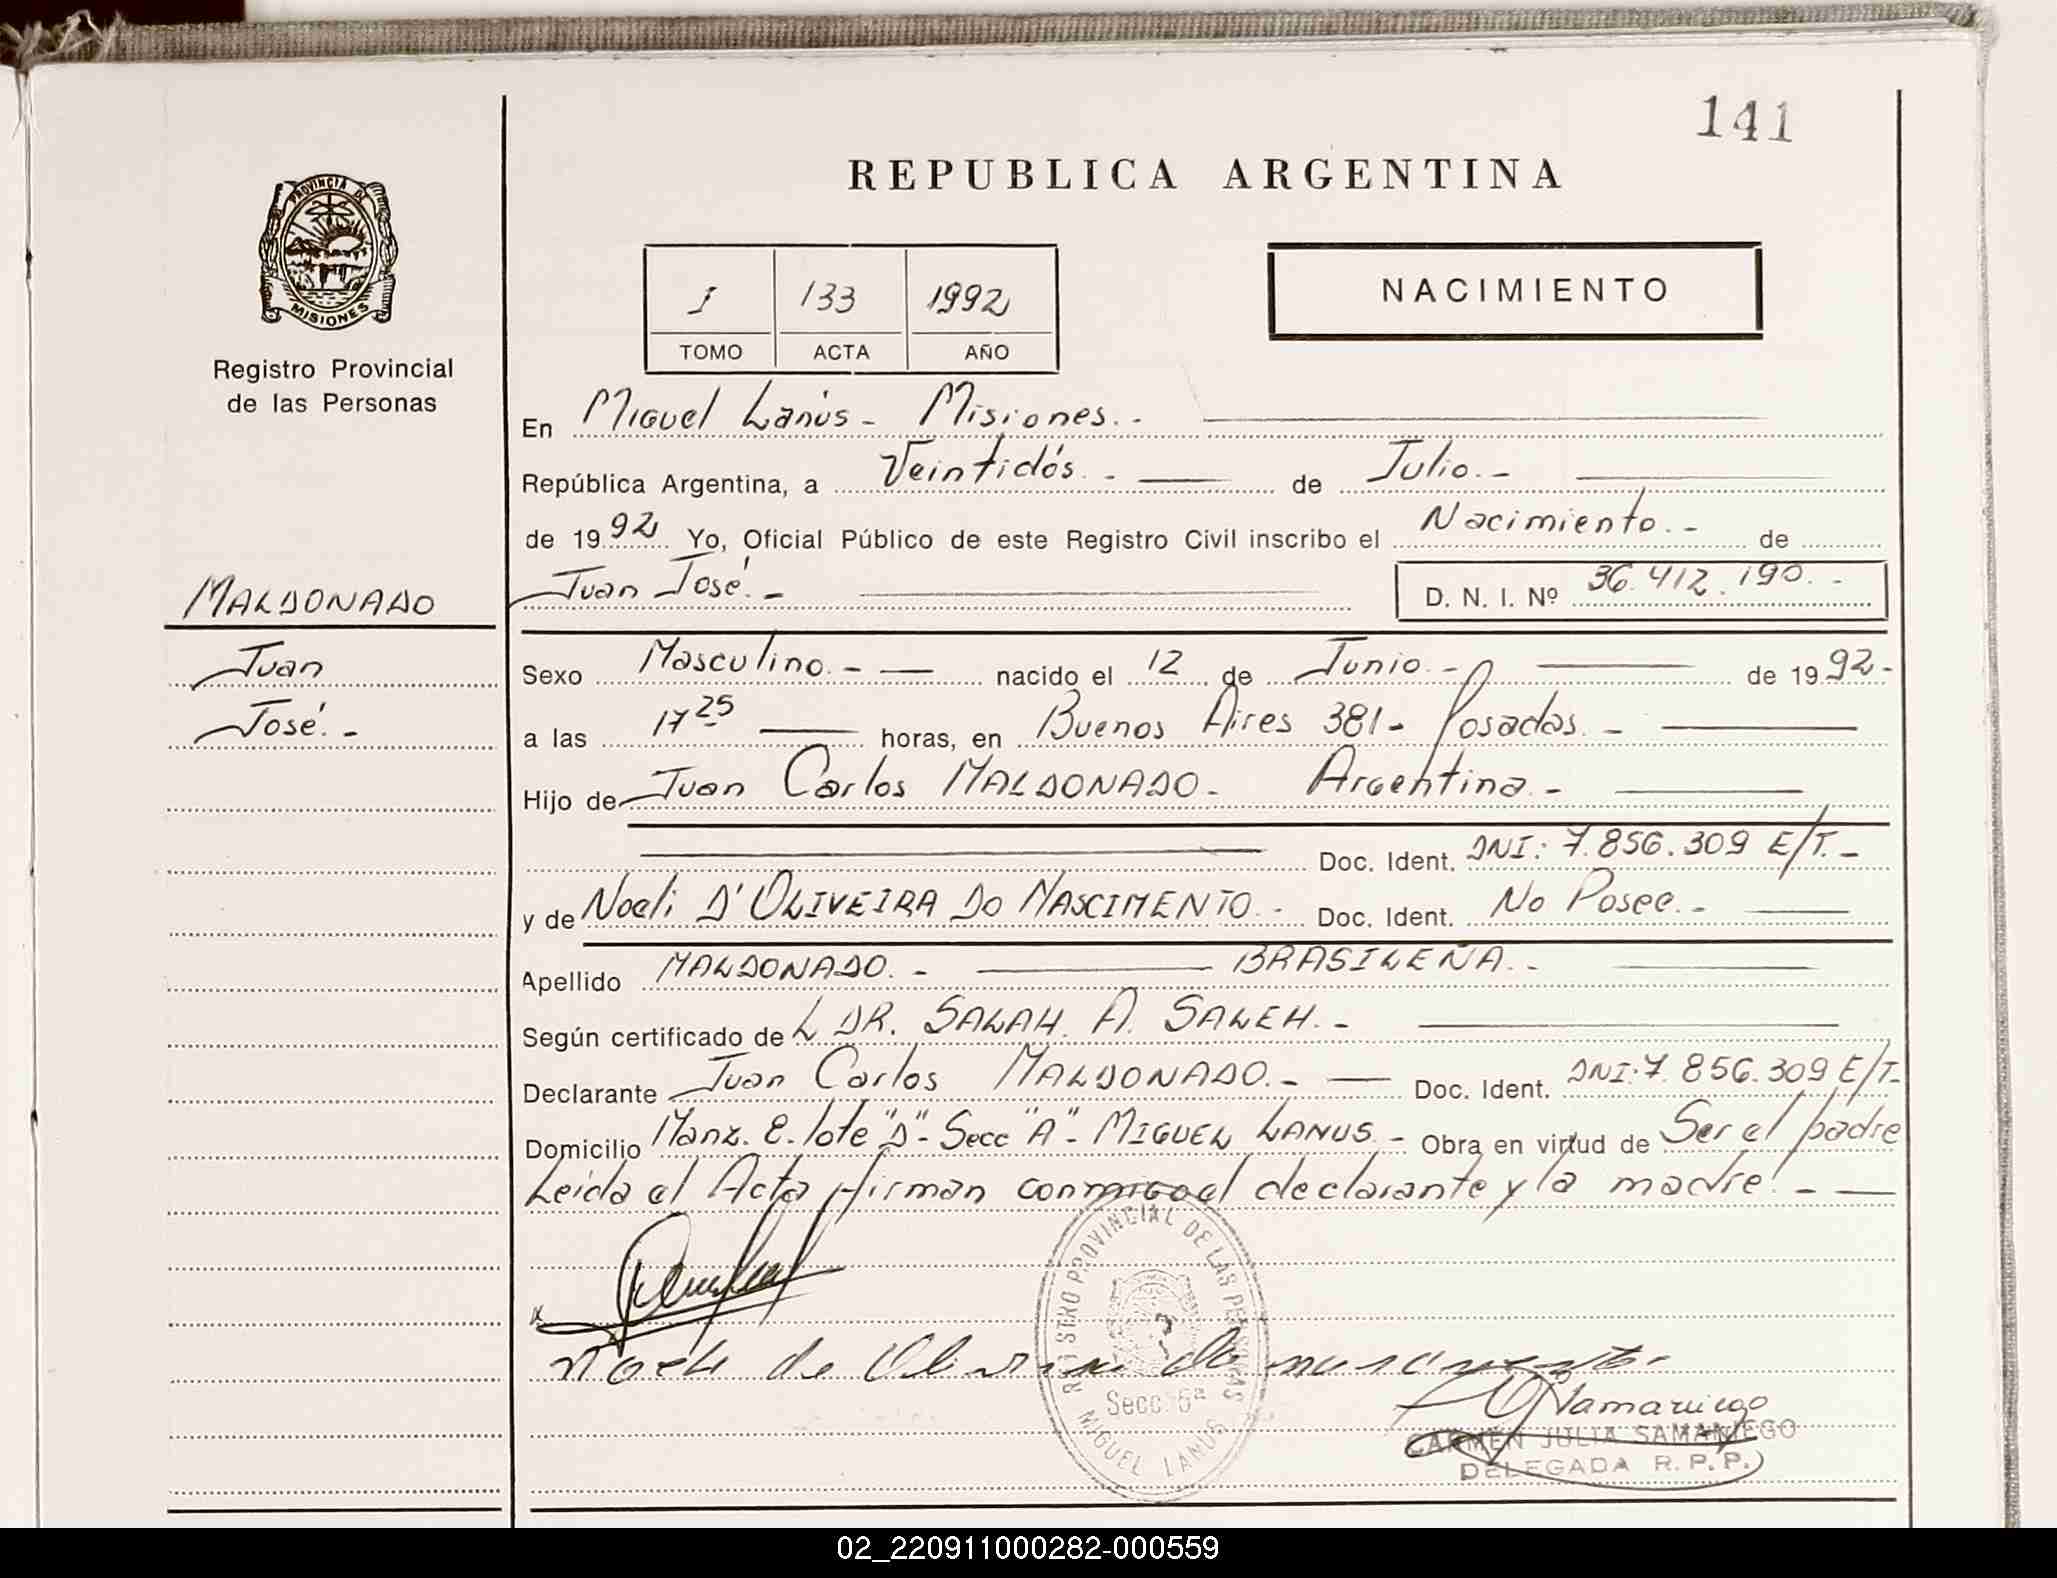 141
REPUBLICA ARGENTINA
PROVINCIA DE
MISIONES
Registro Provincial
de las Personas
I 133 1992
TOMO ACTA AÑO
NACIMIENTO
En Miguel Lanús - Misiones.-
República Argentina, a Veintidós.- de Julio.-
de 1992 Yo, Oficial Público de este Registro Civil inscribo el Nacimiento.- de
Juan José.- D. N. I. Nº 36.412.190.-
MALDONADO
Juan
José.-
Sexo Masculino.- nacido el 12 de Junio.- de 1992-
a las 17 25 horas, en Buenos Aires 381- Posadas.-
Hijo de Juan Carlos MALDONADO- Argentina.-
Doc. Ident. DNI: 7.856.309 E/T.-
y de Noeli D'OLIVEIRA DO NASCIMENTO.- Doc. Ident. No Posee.-
Apellido MALDONADO.- BRASILEÑA.-
Según certificado de L DR. SALAH. A. SALEH.-
Declarante Juan Carlos MALDONADO.- Doc. Ident. DNI: 7.856.309 E/T-
Domicilio Manz. E. lote "D"- Secc "A"- MIGUEL LANUS.- Obra en virtud de Ser el padre
Leida el Acta firman conmigo el declarante y la madre.-
Noeli de Oliveira do nascimento
REGISTRO PROVINCIAL DE LAS PERSONAS
Secc. 6ª
MIGUEL LANUS
Samaniego
CARMEN JULIA SAMANIEGO
DELEGADA R. P. P.
02_220911000282-000559